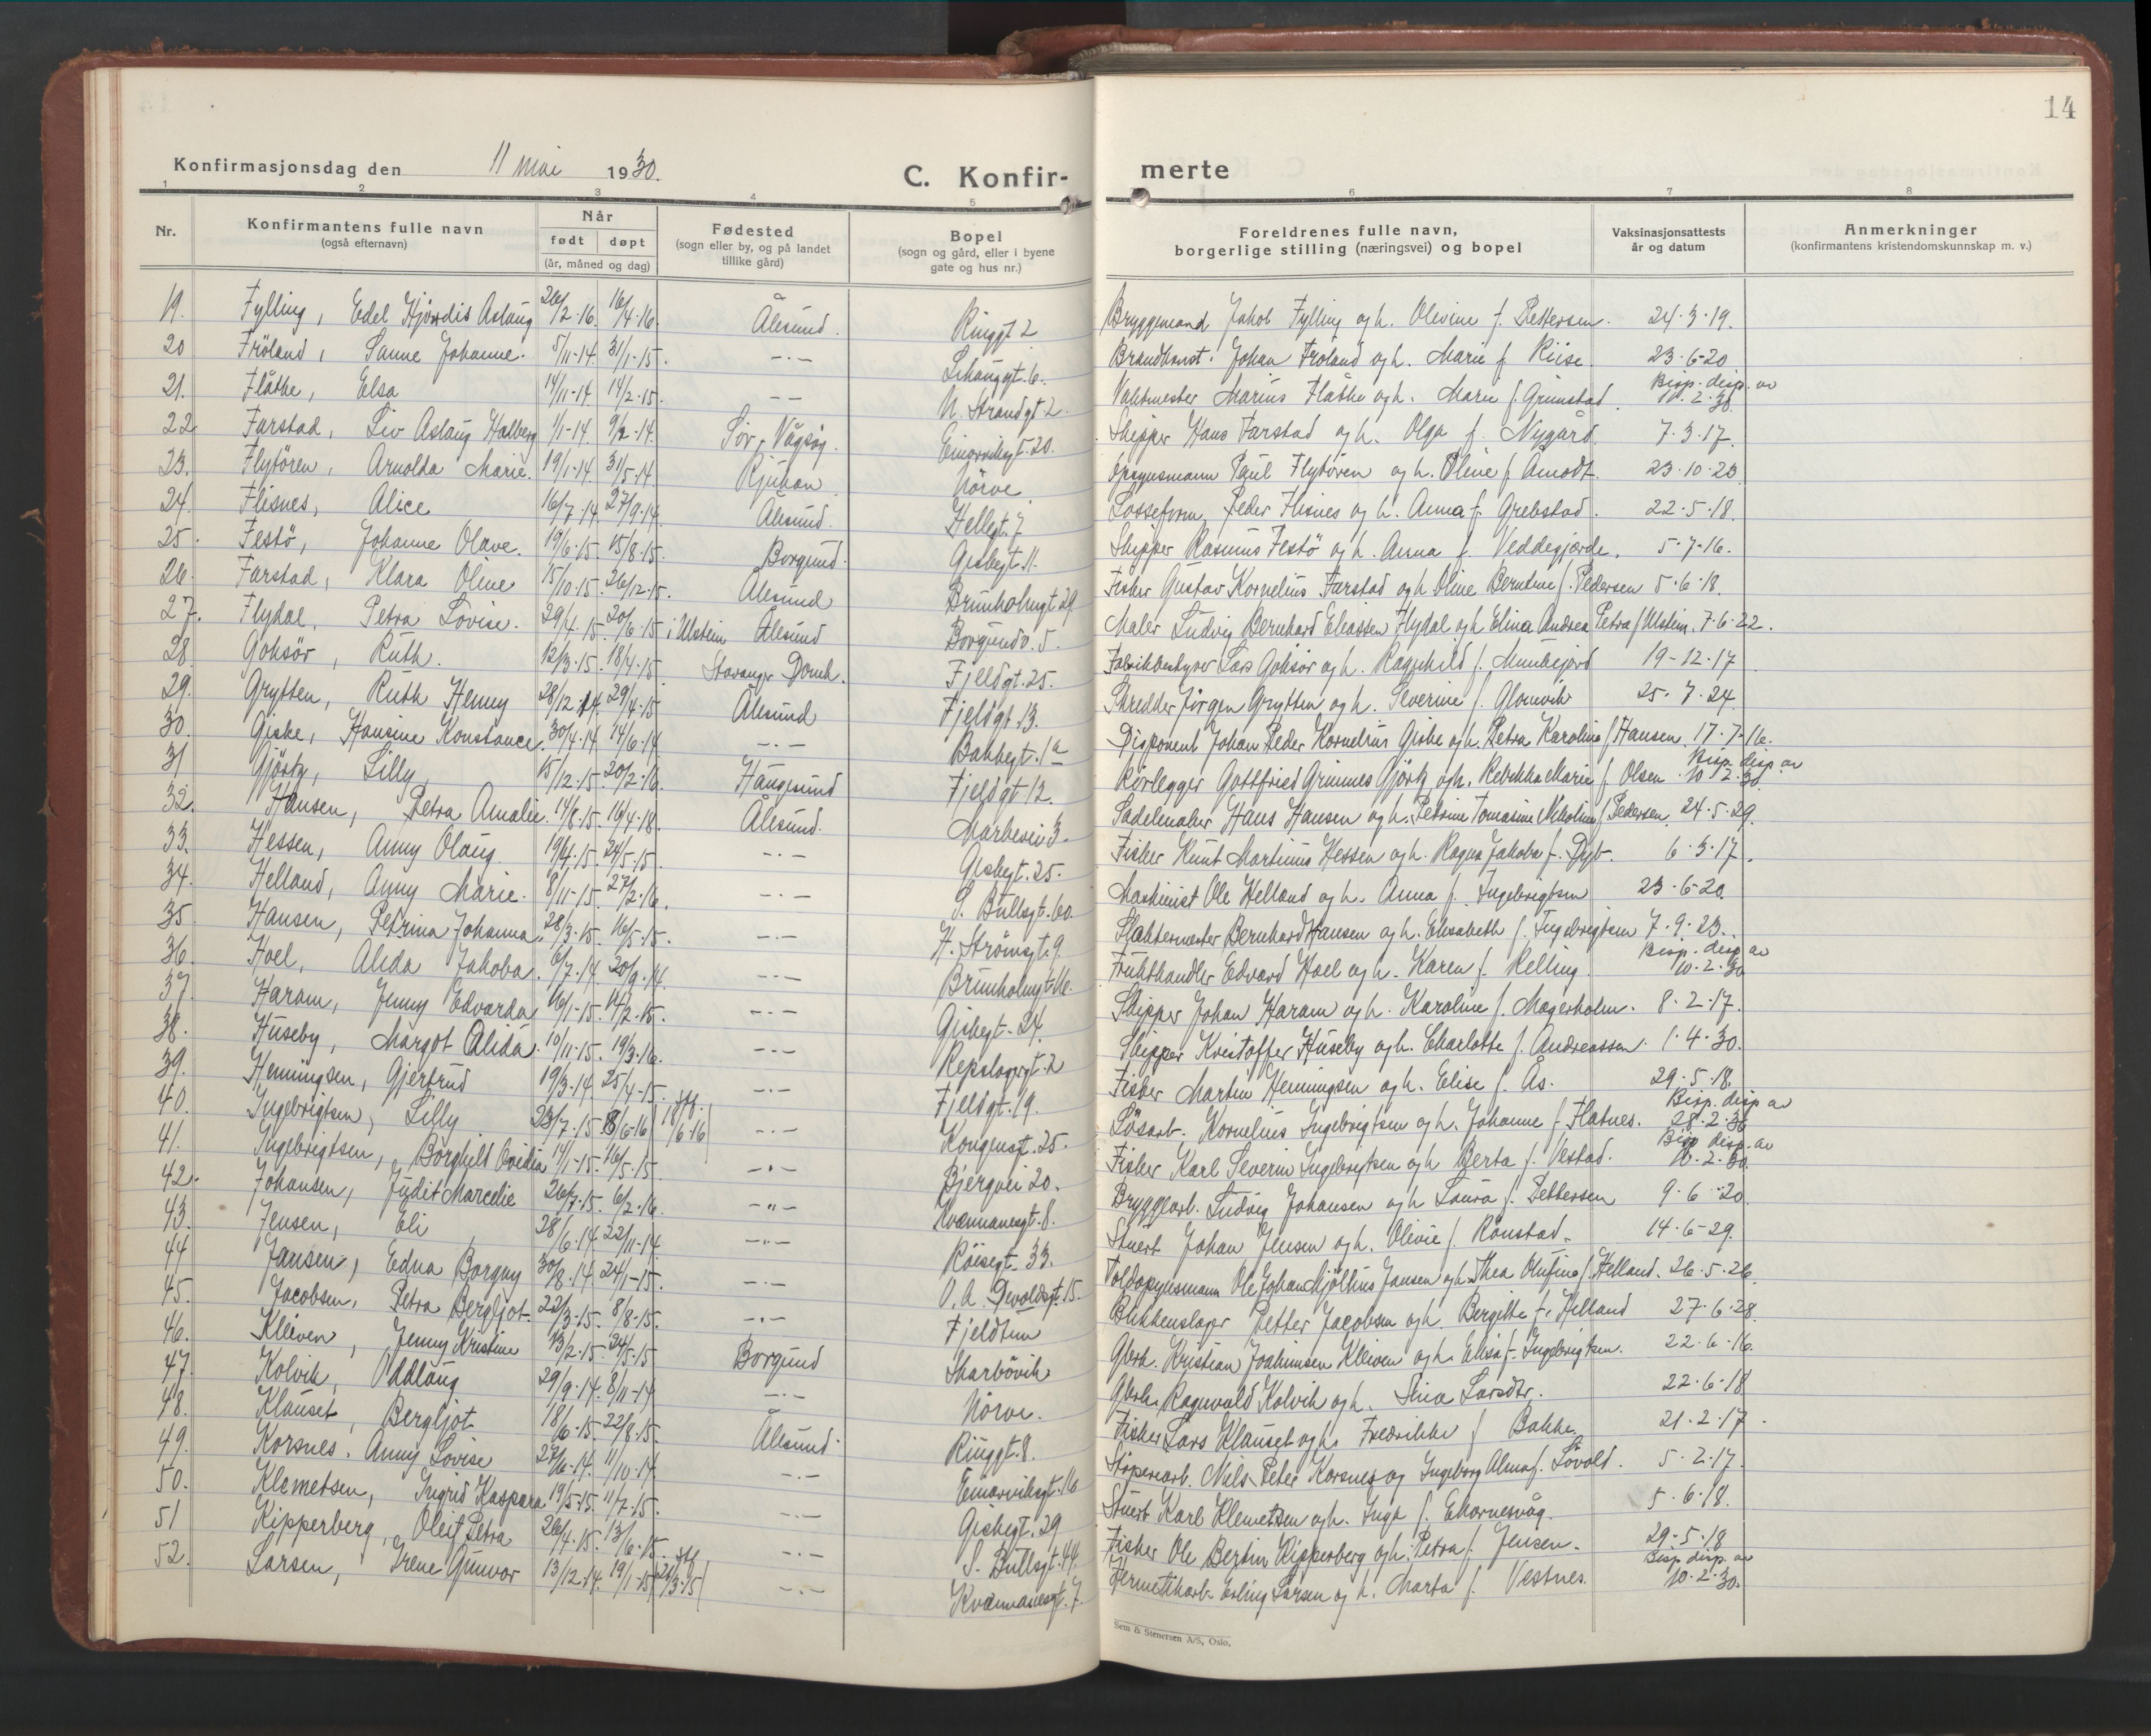 14
Konfirmasjonsdag den 11 mai 1930.
C. Konfir-
merte
1 2 3 4 5 6 7 8
Nr. Konfirmantens fulle navn (også efternavn) Når født døpt (år, måned og dag) Fødested (sogn eller by, og på landet tillike gård) Bopel (sogn og gård, eller i byene gate og hus nr.) Foreldrenes fulle navn, borgerlige stilling (næringsvei) og bopel Vaksinasjonsattests år og datum Anmerkninger (konfirmantens kristendomskunnskap m. v.)
19. Fylling, Edel Hjördis Aslaug 26/2-16. 16/4-16. Ålesund. Ringgt 2 Bryggemand Jakob Fylling og h. Olevine f. Pettersen. 24-3-19.
20 Fröland, Sanne Johanne. 5/11-14. 31/1-15. -"- Lihauggt. 6. Brandkonst. Johan Fröland og h. Marie f. Riise. 23-6-20
21. Flåthe, Elsa 14/11-14. 14/2-15. -- N. Strandgt 2. Vaktmester Marius Flåthe og h. Marie f. Grimstad. Bisp. disp. av 10.2.30.
22 Farstad, Liv Aslaug Halberg 1/1-14. 9/2-14. Sör-Vågsöy. Einarvikgt. 20. Skipper Hans Farstad og h. Olga f. Nygård. 7-3-17.
23. Flytören, Arnolda Marie. 19/1-14. 31/5-14 Rjukan. Nörve. Opsynsmann Paul Flytören og h. Oline f. Åmodt. 23-10-20
24. Flisnes, Alice 16/7-14. 27/9-14. Ålesund. Hellegt. 7 Losseform. Peder Flisnes og h. Anna f. Grebstad. 22-5-18.
25. Festö, Johanne Olave. 19/6-15. 15/8-15. Borgund. Giskegt. 11. Skipper Rasmus Festö og h. Anna f. Veddegjærde. 5-7-16.
26. Farstad, Klara Oline 15/10-15. 26/12-15. Ålesund Brunholmgt 29 Fisker Gustav Kornelius Farstad og h. Oline Berntine f. Pedersen 5-6-18.
27. Flydal, Petra Lovise. 29/4-15. 20/6-15 i Ulstein Ålesund Borgundv. 5. Maler Ludvig Bernhard Eliassen Flydal og h Elina Andrea Petra f Ulstein. 7-6-22.
28 Goksör, Ruth. 12/3-15. 18/4-15 Stavanger Domk. Fjeldgt. 25. Fabrikkbestyrer Lars Goksör og h. Ragnhild f. Munkejord 19-12-17
29. Grytten, Ruth Henny 28/12-14. 29/4-15 Ålesund Fjeldgt. 13. Skredder Jörgen Grytten og h. Severine f. Glomvik 25-7-24
30. Giske, Hansine Konstance. 30/4-14. 14/6-14 -"- Bakkegt. 1a Disponent Johan Peder Kornelius Giske og h. Petra Karoline f Hansen. 17-7-16.
31 Gjörtz, Lilly, 15/12-15. 20/2-16. Haugesund Fjeldgt 12. Rörlegger Gottfried Grimnes Gjörtz og h. Rebekka Marie f. Olsen. Bisp. disp av 10-2-30.
32. Hansen, Petra Amalie. 14/8-15. 16/4-18. Ålesund. Markevei 3. Sadelmaker Hans Hansen og h. Petrine Tomasine Nikoline f Pedersen. 24-5-29.
33. Hessen, Anny Olaug. 19/4-15. 24/5-15. -"- Giskegt. 25. Fisker Knut Martinus Hessen og h. Ragna Jakoba f. Dyb. 6-3-17.
34. Helland, Anny Marie. 8/11-15. 27/2-16. -"- S. Bullsgt. 60. Maskinist Ole Helland og h. Anna f. Ingebrigtsen 23-6-20.
35 Hansen, Petrina Johanna. 28/3-15. 16/5-15. -"- H. Strömsgt. 9. Slaktermester Bernhard Hansen og h. Elisabeth f. Ingebrigtsen 7-9-23.
36. Hoel, Alida Jakoba. 6/7-14. 20/9-14. -"- Brunholmgt 16. Frukthandler Edvard Hoel og h. Karen f. Relling. Bisp. disp av 10-2-30
37. Haram, Jenny Edvarda 16/1-15. 14/2-15. -"- Giskegt. 24. Skipper Johan Haram og h. Karoline f. Magerholm. 8-2-17.
38. Huseby, Margot Alida. 10/11-15. 19/3-16. -"- Repslagergt. 2 Skipper Kristoffer Huseby og h. Charlotte f. Andreassen. 1-4-30.
39. Henningsen, Gjertrud 19/3-14. 25/4-15. -"- Fjeldgt. 19. Fisker Martin Henningsen og h. Elise f. Ås. 29-5-18.
40. Ingebrigtsen, Lilly 23/7-15 8/6-16 stf. 18/6-16 -"- Kongensgt. 25. Lösarb. Kornelius Ingebrigtsen og h. Johanne f. Flatnes. Bisp. disp av 28-2-30
41. Ingebrigtsen, Borghild Ovidia 14/1-15. 16/5-15. -"- Bjergvei 20. Fisker Karl Severin Ingebrigtsen og h Berta f. Vestad. Bisp disp. av 10.2.30.
42. Johansen, Judit Marcelie 26/7-15. 6/2-16. -"- Kvennanesgt. 8. Bryggearb. Ludvig Johansen og h Laura f. Pettersen 9-6-20
43. Jensen, Eli 28/6-14. 22/11-14 -"- Röisegt. 33. Stuert Johan Jensen og h. Olivie f. Rönstad. 14-6-29.
44 Jansen, Edna Borgny 30/8-14. 24/1-15. -"- O. A. Devoldsgt. 15. Toldopsynsmann Ole Johan Mjöltnus Jansen og h. Thea Olufine f. Helland. 26-5-26.
45. Jacobsen, Petra Bergljot. 22/3-15. 8/8-15. -"- Fjeldtun Blikkenslager Petter Jacobsen og h. Bergitte f. Helland 27-6-28.
46. Kleiven, Jenny Kristine 13/2-15. 24/5-15 Borgund Skarbövik Gbrk. Kristian Joakimsen Kleiven og h. Elisa f. Ingebrigtsen. 22-6-16.
47. Kolvik, Oddlaug 29/9-14. 8/11-14 -"- Nörve. Gbrk. Ragnvald Kolvik og h. Sina Larsdtr. 22-6-18
48. Klauset, Bergljot 18/6-15. 22/8-15. Ålesund. Ringgt. 8. Fisker Lars Klauset og h. Fredrikke f Bakke 21-2-17.
49. Korsnes. Anny Lovise 27/6-14. 11/10-14 -"- Einarvikgt. 16 Stöperiarb. Nils Peter Korsnes og Ingeborg Alma f. Lövold. 5-2-17.
50. Klemetsen, Ingrid Kaspara 19/5-15. 11/7-15. -"- Giskegt. 29 Stuert Karl Klemetsen og h. Inga f. Ekornesvåg. 5-6-18.
51 Kipperberg, Oleif Petra 26/4-15. 13/6-15. -"- S. Bullsgt. 44. Fisker Ole Bertin Kipperberg og h. Petra f. Jensen. 29-5-18
52. Larsen, Irene Gunvor 13/12-14. 19/1-15 stf 21/3-15 -"- Kvennanesgt. 7. Hermetikarb. Erling Larsen og h. Marta f. Vestnes. Bisp disp. av 10-2-30.
Sem & Stenersen A/S, Oslo.